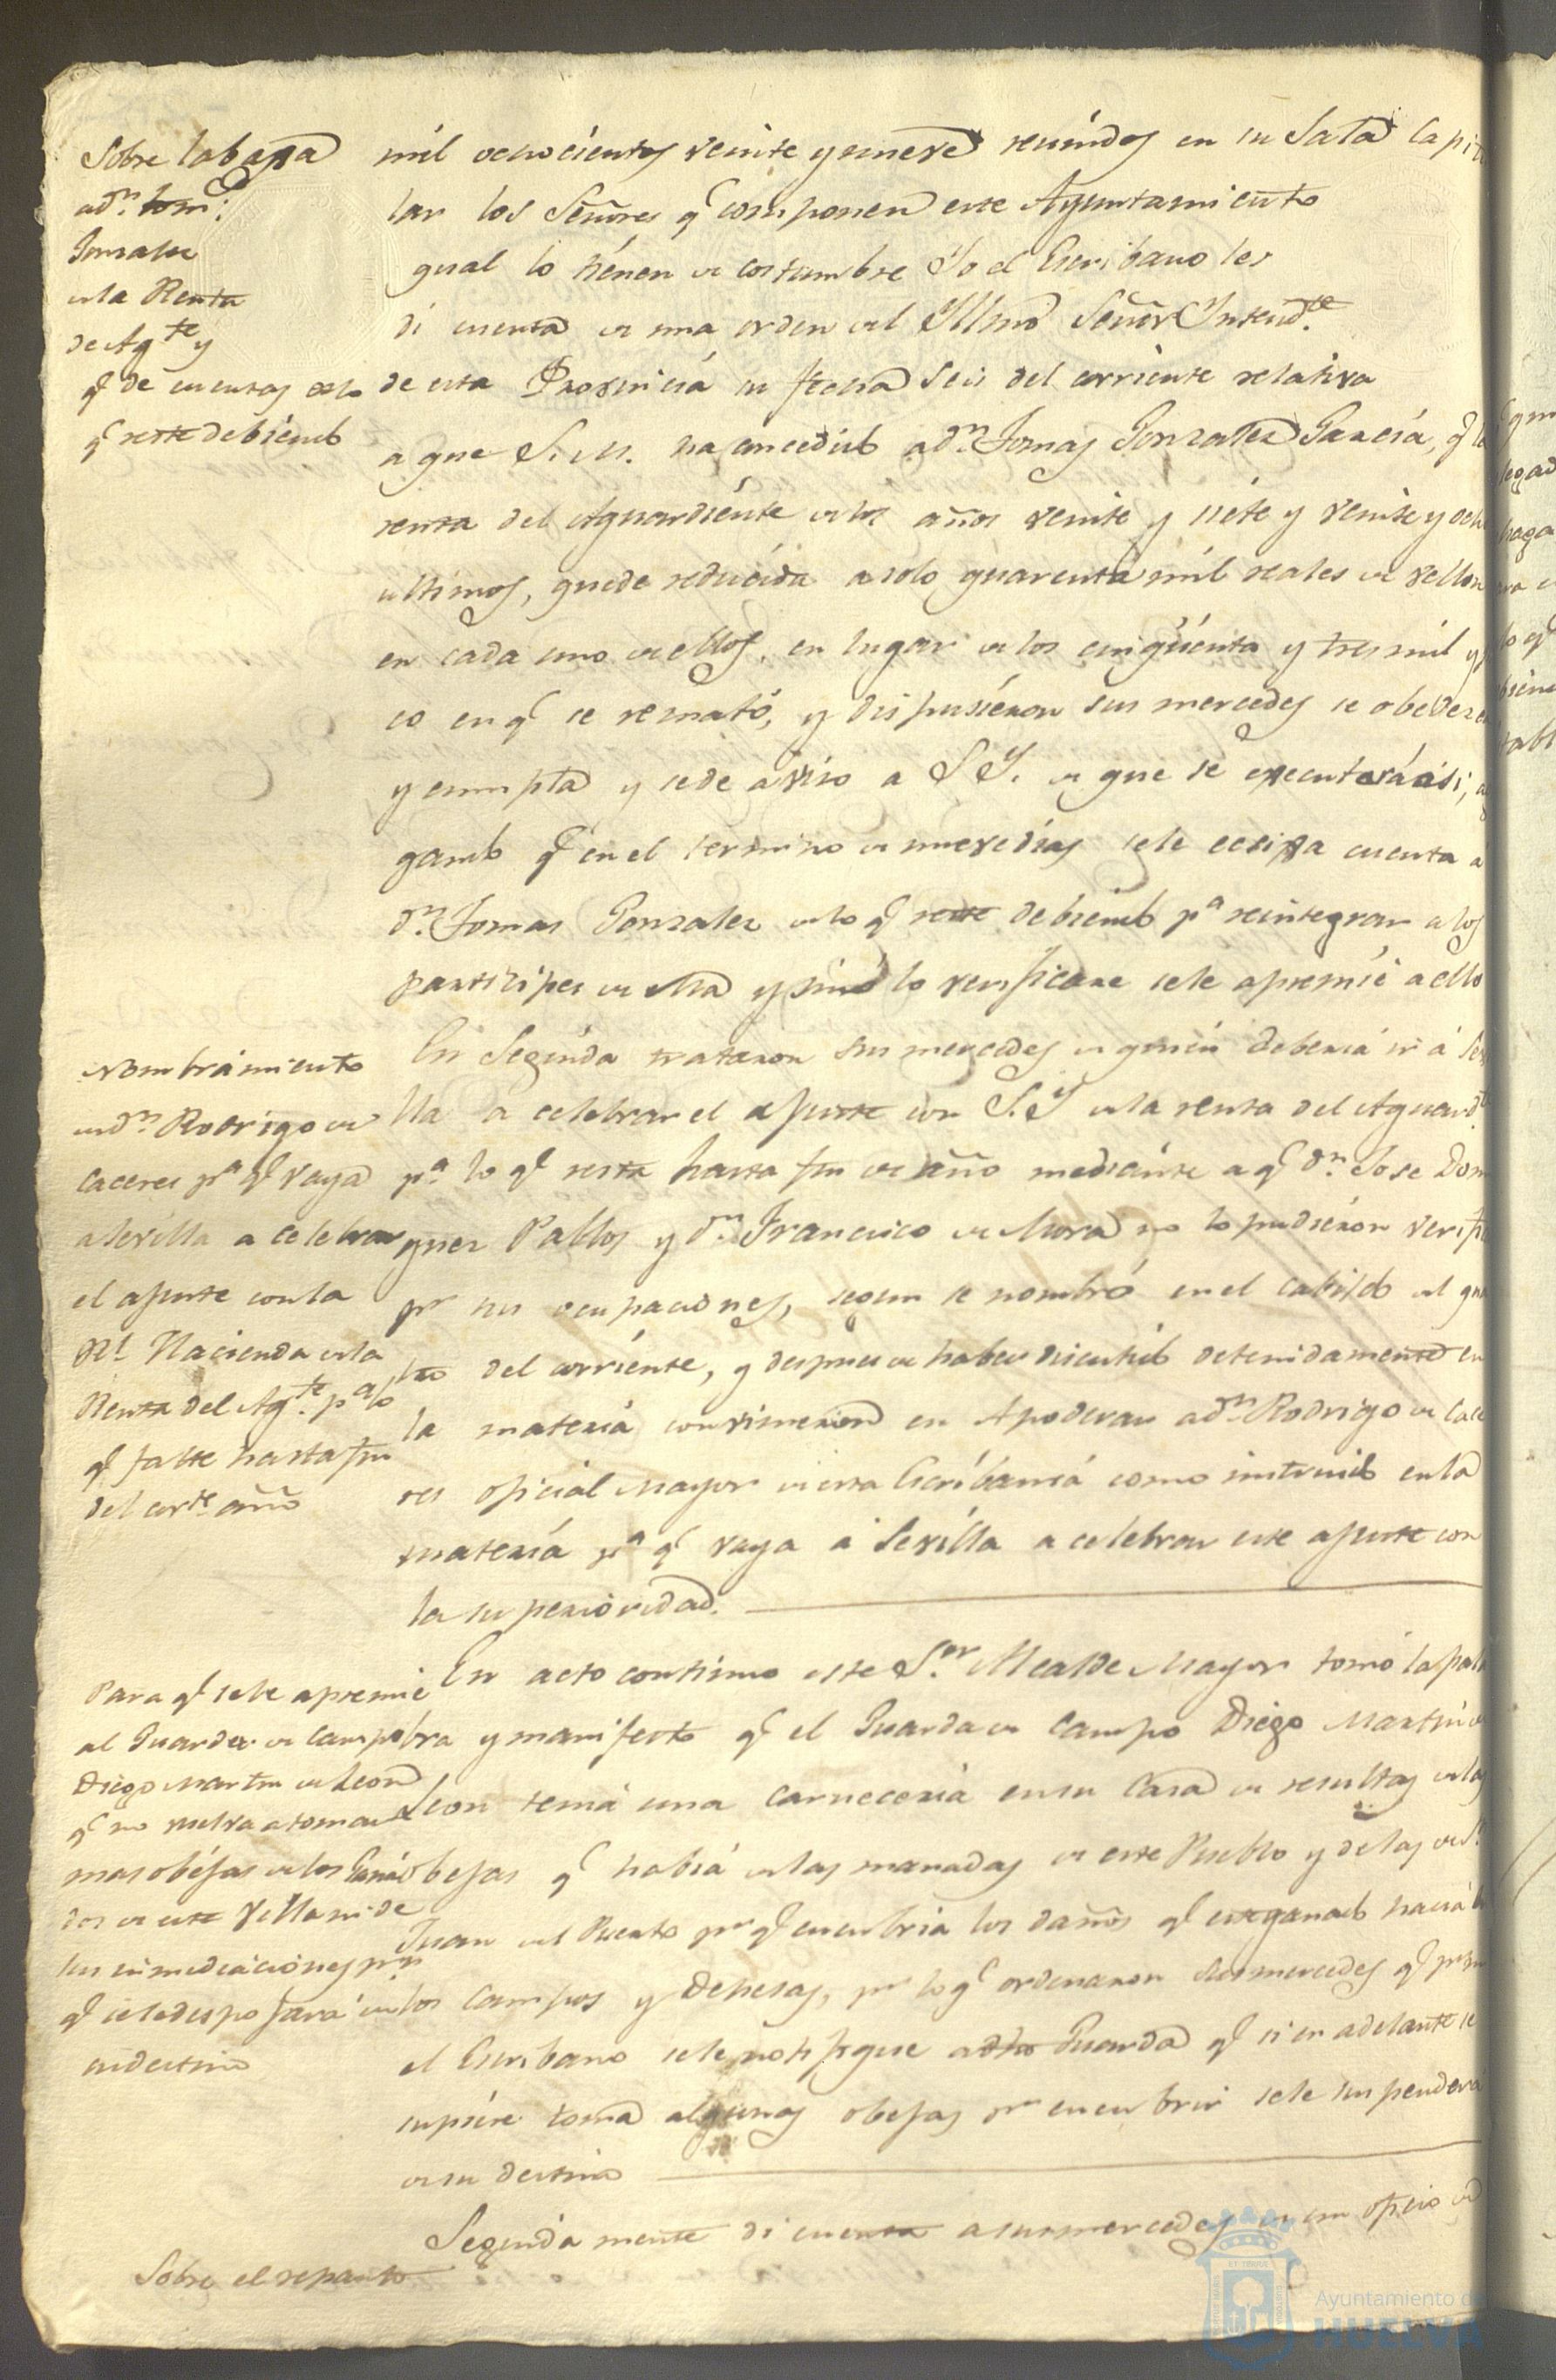 Sobre la baja
a Dn. Tom.
Gonzalez
de la Renta
de Agte y
q de cuentas de lo
q reste debiendo
mil ochocientos veinte y nueve reunidos en su Sala Capitu
lar los Señores q componen este Ayuntamiento
qual lo tienen de costumbre Yo el Escribano les
di cuenta de una orden del Yllmo Señor Yntendte
de esta Provincia su fecha seis del corriente relativa
a que S. M. ha concedido a Dn. Tomas Gonzalez Garcia, q la
renta del Aguardiente de los años veinte y siete y veinte y ocho
ultimos, quede reducida a solo quarenta mil reales de vellon
en cada uno de ellos, en lugar de los cinqüenta y tres mil y
co en q se remató, y dispusieron sus mercedes se obedezca
y cumpla y se de aviso a S Y. de que se executará asi,
gando q en el termino de nueve dias se le exija cuenta a
Dn. Tomas Gonzalez de lo q reste debiendo pa reintegrar a los
participes de ella y sino lo verificare se le apremie a ello
Nombramiento
en Dn Rodrigo de
Caceres pa q vaya
a Sevilla a celebrar
el ajuste con la
Rl. Hacienda de la
Renta del Agte. pa lo
q falte hasta fin
del corte. año
En Seguida trataron sus mercedes de quien deberia ir á Sevi
lla a celebrar el ajuste con S.Y de la renta del Aguardte
pa. lo q resta hasta fin de año mediante a q Dn. Jose Domin
guez Pablos y Dn. Francisco de Mora no lo pudieron verifi
pr sus ocupaciones, segun se nombró en el cabildo del qua
tro del corriente, y despues de haber discutido detenidamente en
la materia convinieron en Apoderar a Dn. Rodrigo de Cace
res oficial mayor de esta Escribania como instruido en la
materia pa q vaya á Sevilla a celebrar este ajuste con
la superioridad.
Para q se le apremie
al Guarda de Campo
Diego Martin de Leon
q no vuelva a tomar
mas obejas de los Gana
dos de este Villa ni de
sus inmediaciones pr
q se le despojará de
su destino
En acto continuo este Sor. Alcalde Mayor tomó la pala
bra y manifesto q el Guarda de Campo Diego Martin de
Leon tenia una carneceria en su Casa de resultas de las
obejas q habia de las manadas de este Pueblo y de las de S.
Juan del Puerto pr q encubria los daños q este ganado hacia en
los Campos y Dehesas, pr lo q ordenaron sus mercedes q pr mi
el Escribano se le notifique a dho Guarda q si en adelante se
supiere toma algunas obejas pr encubrir se le suspenderá
de su destino
Sobre el reparto
Segundamente di cuenta a sus mercedes de un oficio de
Ayuntamiento de
HUELVA